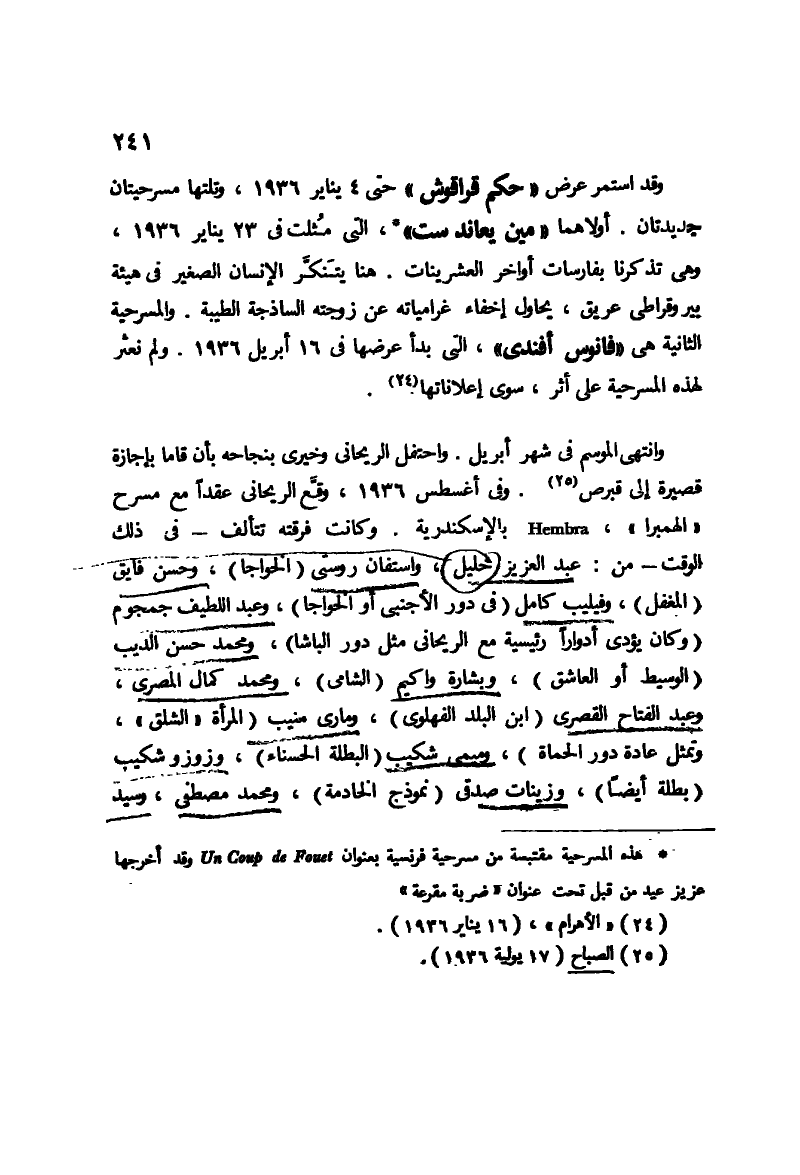 ٢٤١
وقد استمر عرض « حكم قراقوش » حتى ٤ يناير ١٩٣٦ ، وتلتها مسرحيتان
جديدتان . أولاهما « مين يعاند ست»* ، التى مُثلت فى ٢٣ يناير ١٩٣٦ ،
وهى تذكرنا بفارسات أواخر العشرينات . هنا يتَنكَّر الإنسان الصغير فى هيئة
بيروقراطى عريق ، يحاول إخفاء غرامياته عن زوجته الساذجة الطيبة . والمسرحية
الثانية هى «فانوس أفندى» ، التى بدأ عرضها فى ١٦ أبريل ١٩٣٦ . ولم نعثر
لهذه المسرحية على أثر ، سوى إعلاناتها(٢٤) .
وانتهى الموسم فى شهر أبريل . واحتفل الريحانى وخيرى بنجاحه بأن قاما بإجازة
قصيرة إلى قبرص(٢٥) . وفى أغسطس ١٩٣٦ ، وقَّع الريحانى عقداً مع مسرح
« الهمبرا » ، Hembra بالإسكندرية . وكانت فرقته تتألف – فى ذلك
الوقت – من : عبد العزيز خليل ، واستفان روستى ( الخواجا ) ، وحسن فايق
( المغفل ) ، وفيليب كامل ( فى دور الأجنبى أو الخواجا ) ، وعبد اللطيف جمجوم
( وكان يؤدى أدواراً رئيسية مع الريحانى مثل دور الباشا) ، ومحمد حسن الديب
( الوسيط أو العاشق ) ، وبشارة واكيم ( الشامى ) ، ومحمد كمال المصرى ،
وعبد الفتاح القصرى ( ابن البلد الفهلوى ) ، ومارى منيب ( المرأة « الشلق » ،
وتمثل عادة دور الحماة ) ، وميمى شكيب ( البطلة الحسناء ) ، وزوزو شكيب
( بطلة أيضاً ) ، وزينات صدقى ( نموذج الخادمة ) ، ومحمد مصطفى ، وسيد
* هذه المسرحية مقتبسة من مسرحية فرنسية بعنوان Un Coup de Fouet وقد أخرجها
عزيز عيد من قبل تحت عنوان « ضربة مقرعة »
( ٢٤ ) « الأهرام » ، ( ١٦ يناير ١٩٣٦ ) .
( ٢٥ ) الصباح ( ١٧ يولية ١٩٣٦ ) .